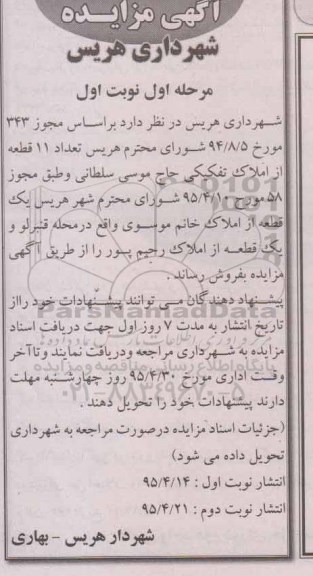 آگهی مزایده
شهرداری هریس
مرحله اول نوبت اول
شهرداری هریس در نظر دارد براساس مجوز ۳۴۳
مورخ ۹۴/۸/۵ شورای محترم هریس تعداد ۱۱ قطعه
از املاک تفکیکی حاج موسی سلطانی وطبق مجوز
۵۸ مورخ ۹۵/۴/۱ شورای محترم شهر هریس یک
قطعه از املاک خانم موسوی واقع درمحله قنبرلو و
یک قطعه از املاک رحیم پور را از طریق آگهی
مزایده بفروش رساند.
پیشنهاد دهندگان می توانند پیشنهادات خود رااز
تاریخ انتشار به مدت ۷ روز اول جهت دریافت اسناد
مزایده به شهرداری مراجعه ودریافت نمایند وتاآخر
وقت اداری مورخ ۹۵/۴/۳۰ روز چهارشنبه مهلت
دارند پیشنهادات خود را تحویل دهند.
(جزئیات اسناد مزایده درصورت مراجعه به شهرداری
تحویل داده می شود)
انتشار نوبت اول : ۹۵/۴/۱۴
انتشار نوبت دوم : ۹۵/۴/۲۱
شهردار هریس - بهاری
ParsNamadData